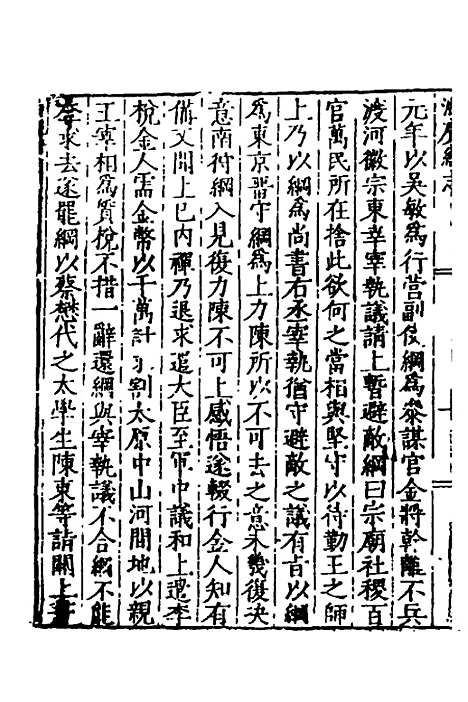 元年以吳敏爲行營副使綱爲叅謀官金將幹離不兵
渡河徽宗東幸宰執議請上暫避敵綱曰宗廟社稷百
官萬民所在捨此欲何之當相與堅守以待勤王之師
上乃以綱爲尚書右丞宰執猶守避敵之議有旨以綱
爲東京畱守綱爲上力陳所以不可去之意未幾復决
意南狩綱入見復力陳不可上感悟遂輟行金人知有
備又聞上已内禪乃退求遣大臣至軍中議和上遣李
梲金人需金幣以千萬計 割太原中山河間地以親
王宰相爲質梲不措一辭還綱與宰執議不合綱不能
奪求去遂罷綱以蔡懋代之太學生陳東等詣闕上